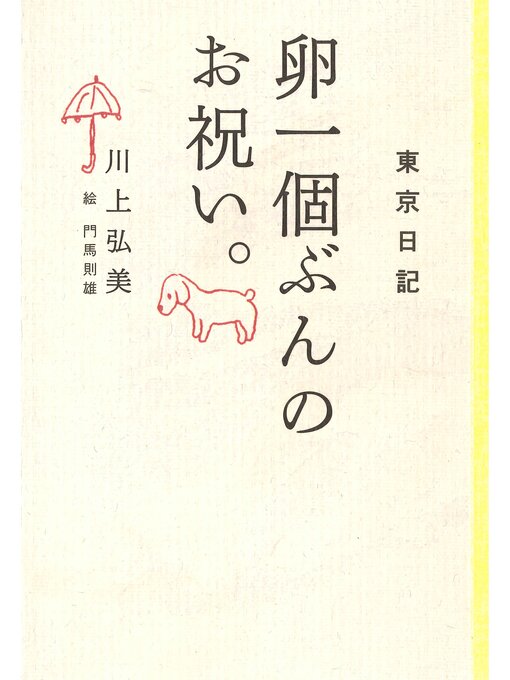 東京日記
卵一個ぶんの
お祝い。
川上弘美
絵 門馬則雄